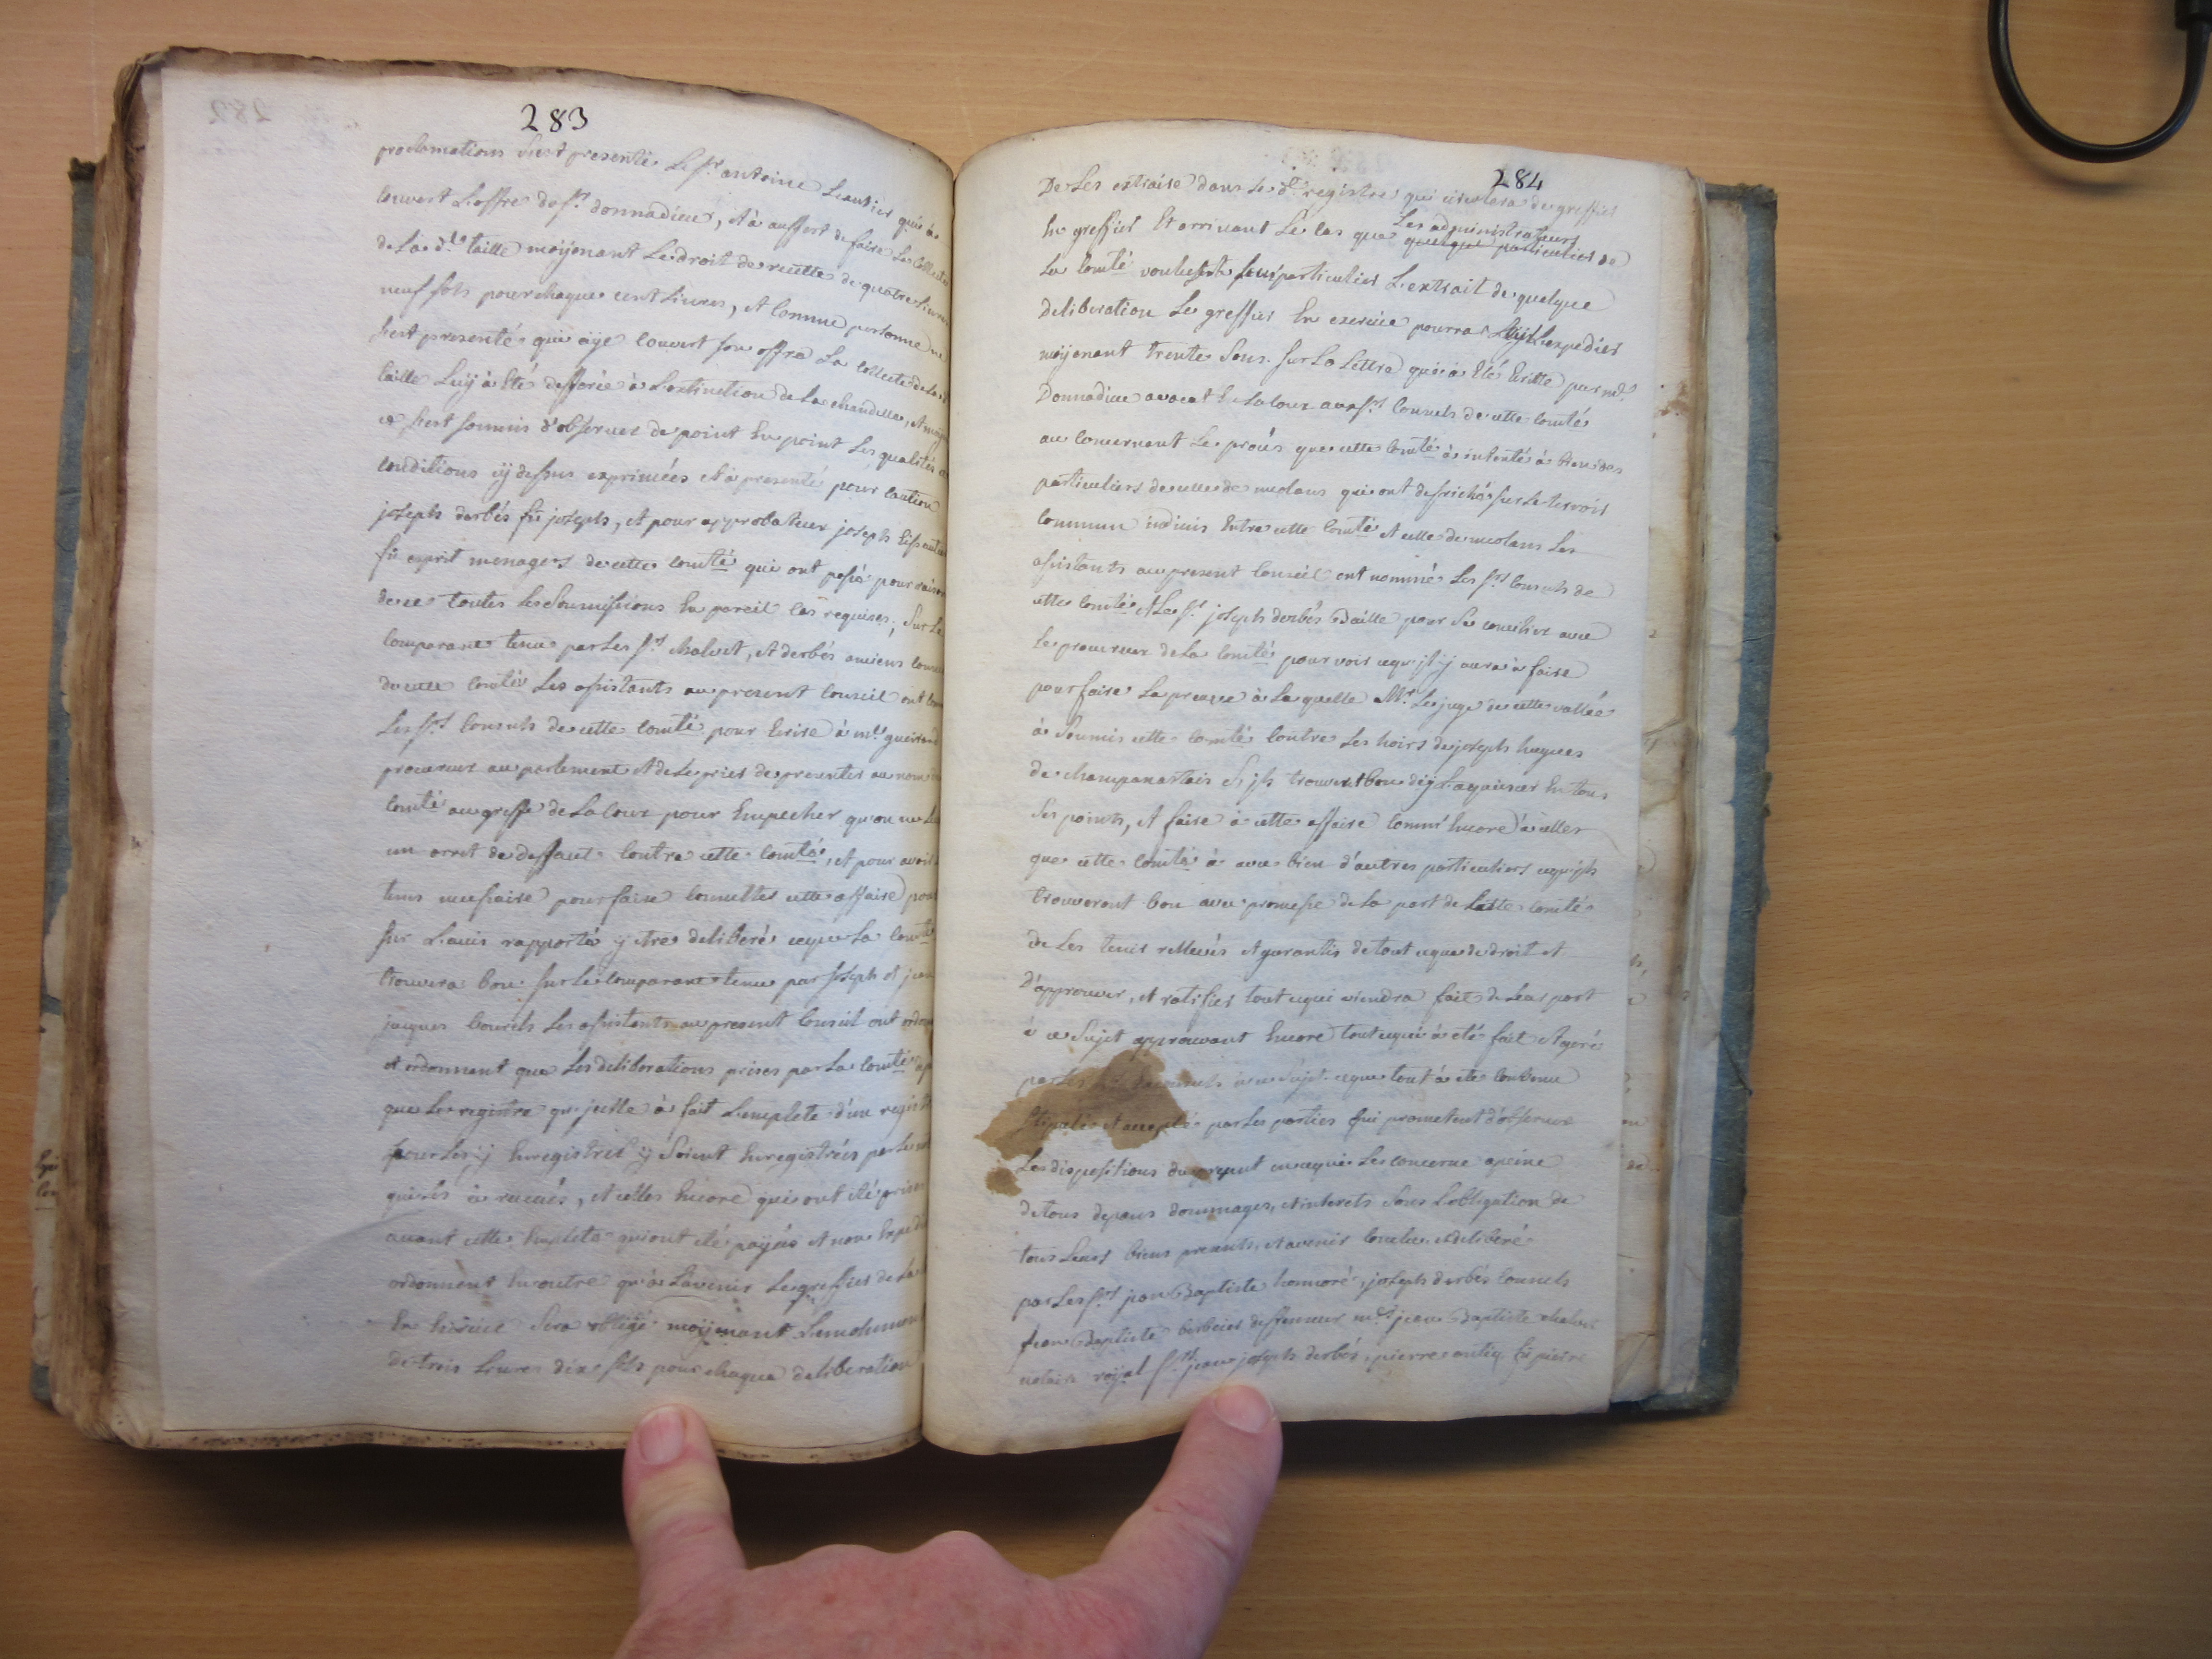 283
proclamations s'est presenté le sr antoine Leautier qui à
couvert L'offre du sr donnadieu, et à auffert de faire La Collecte
de La de taille moÿenant Le droit de recette de quatre Livres
neuf sols pour chaque cent Livres, et Comme personne ne
s'est presenté qui aÿe Couvert son offre La Collecte de La de
taille Luÿ à Eté defferée à L'extinction de La chandelle, et
ce s'est soumis d'observer de point En point Les qualités et
conditions cÿ dessus exprimées et à presenté pour Caution
joseph derbés fû joseph, et pour approbateur joseph
fû esprit menagers de cette Comté qui ont passé pour raison
de ce toutes Les Soumissions En pareil Cas requises; Sur Le
Comparant tenu par Les srs chalvet, et derbés anciens
de cette Comté Les assistants au present Conseil ont
Les srs Consuls de cette Comté pour Ecrire à mre
procureur au parlement et de Le prier de presenter au nom
Comté au greffe de La Cour pour Empecher qu'on ne
un arret de deffaut Contre cette Comté, et pour avoir
tems necessaire pour faire Consulter cette affaire pour
sur L'avis rapporté ÿ etre deliberé ceque La Comté
trouvera bon sur Le Comparant tenu par joseph et jean
jaques Les assistants au present Conseil ont
et ordonnent que Les deliberations prises par La Comté
que Le registre qu'jcelle à fait L'emplete d'un registre
pour Les ÿ Enregistrer ÿ Soient Enregistrées par Le
qui Les à recues, et celles Encore qui ont eté prises
avant cette Emplete qui ont eté payées et non
ordonnent En outre qu'à L'avenir Le greffier de La
En Exercice Sera obligé moÿenant
de trois Livres dix sols pour chaque deliberation
284
De Les extraire dans Le dt registre qui circulera de greffier
En greffier Et arrivant Le Cas que quelque particulier de
Les administrateurs
La Comté particulier L'extrait de quelque
deliberation Le greffier En exercice pourra L'expedier
moÿenant trente Sous. Sur La Lettre qui à Eté Ecritte par mre
Donnadieu avocat En La Cour aux srs Consuls de cette Comté
au Concernant Le procés que cette Comté à intenté à
particuliers de celle de meolans qui ont defriché sur Le terroir
Commun indivis Entre cette Comté et celle de meolans Les
assistants au present Conseil ont nommé Les srs Consuls de
cette Comté et Le sr joseph derbés Baille pour Se concilier avec
Le procureur de La Comté pour voir cequ'jl ÿ aura à faire
pour faire La preuve à La quelle Mr. Le juge de cette vallée
à Soumis cette Comté Contre Les hoirs de joseph hugues
de S'jls trouvent bon d'ÿ L'aquiescer En tous
Ses points, et faire à cette affaire Comm' Encore à celles
que cette Comté à avec bien d'autres particuliers cequ'jls
trouveront bon avec promesse de La part de cette Comté
de Les tenir rellevés et garantis de tout ceque de droit et
D'approuver, et ratifier tout cequi viendra fait de Leur part
à ce Sujet approuvant Encore tout cequi à eté fait et geré
par Les à ce Sujet ceque tout à eté Convenu
Stipulé et accepté par Les parties qui prometent d'observer
Les dispositions du present en cequi Les concerne a peine
de tous depans dommages, et interets Sous L'obligation de
tous Leurs biens presents, et avenir Conclu et deliberé
par Les srs jean Baptiste honnoré, joseph derbés Consuls
jean Baptiste deffenseur mre jean Baptiste chalvet
notaire roÿal sr jean joseph derbés, pierre fû pierre